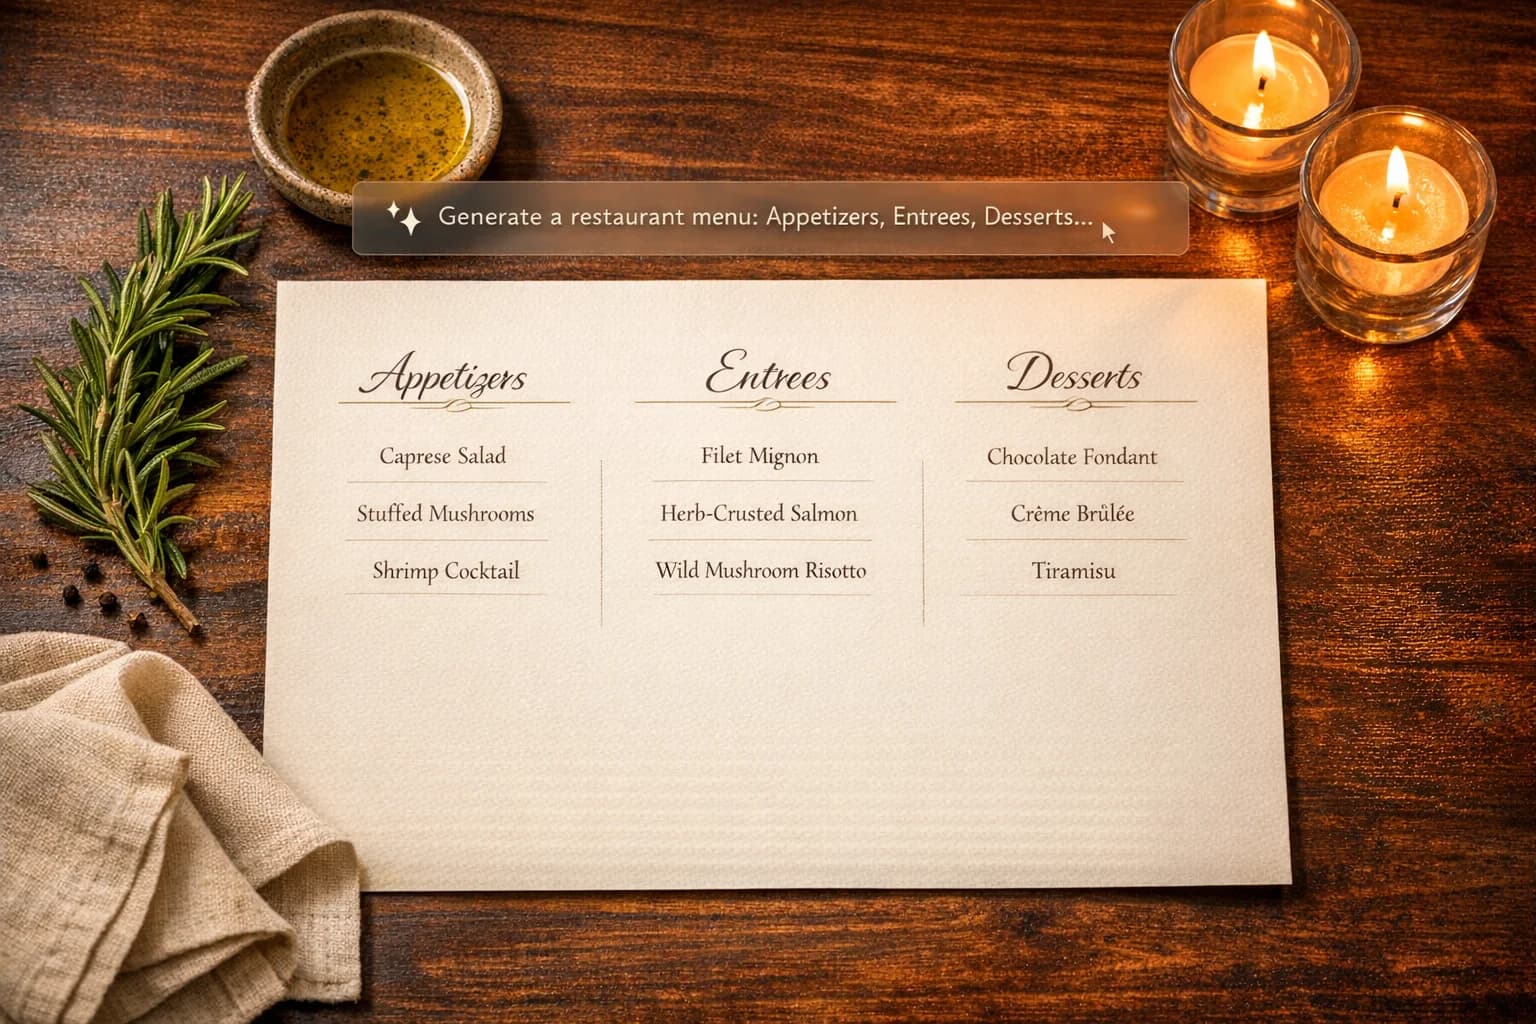 Generate a restaurant menu: Appetizers, Entrees, Desserts...
Appetizers
Caprese Salad
Stuffed Mushrooms
Shrimp Cocktail
Entrees
Filet Mignon
Herb-Crusted Salmon
Wild Mushroom Risotto
Desserts
Chocolate Fondant
Crème Brûlée
Tiramisu